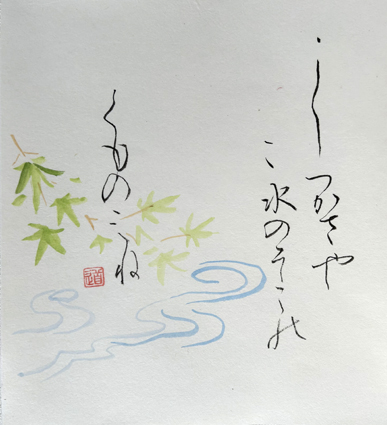 しつかさや
こ水のそこの
くものみね
道